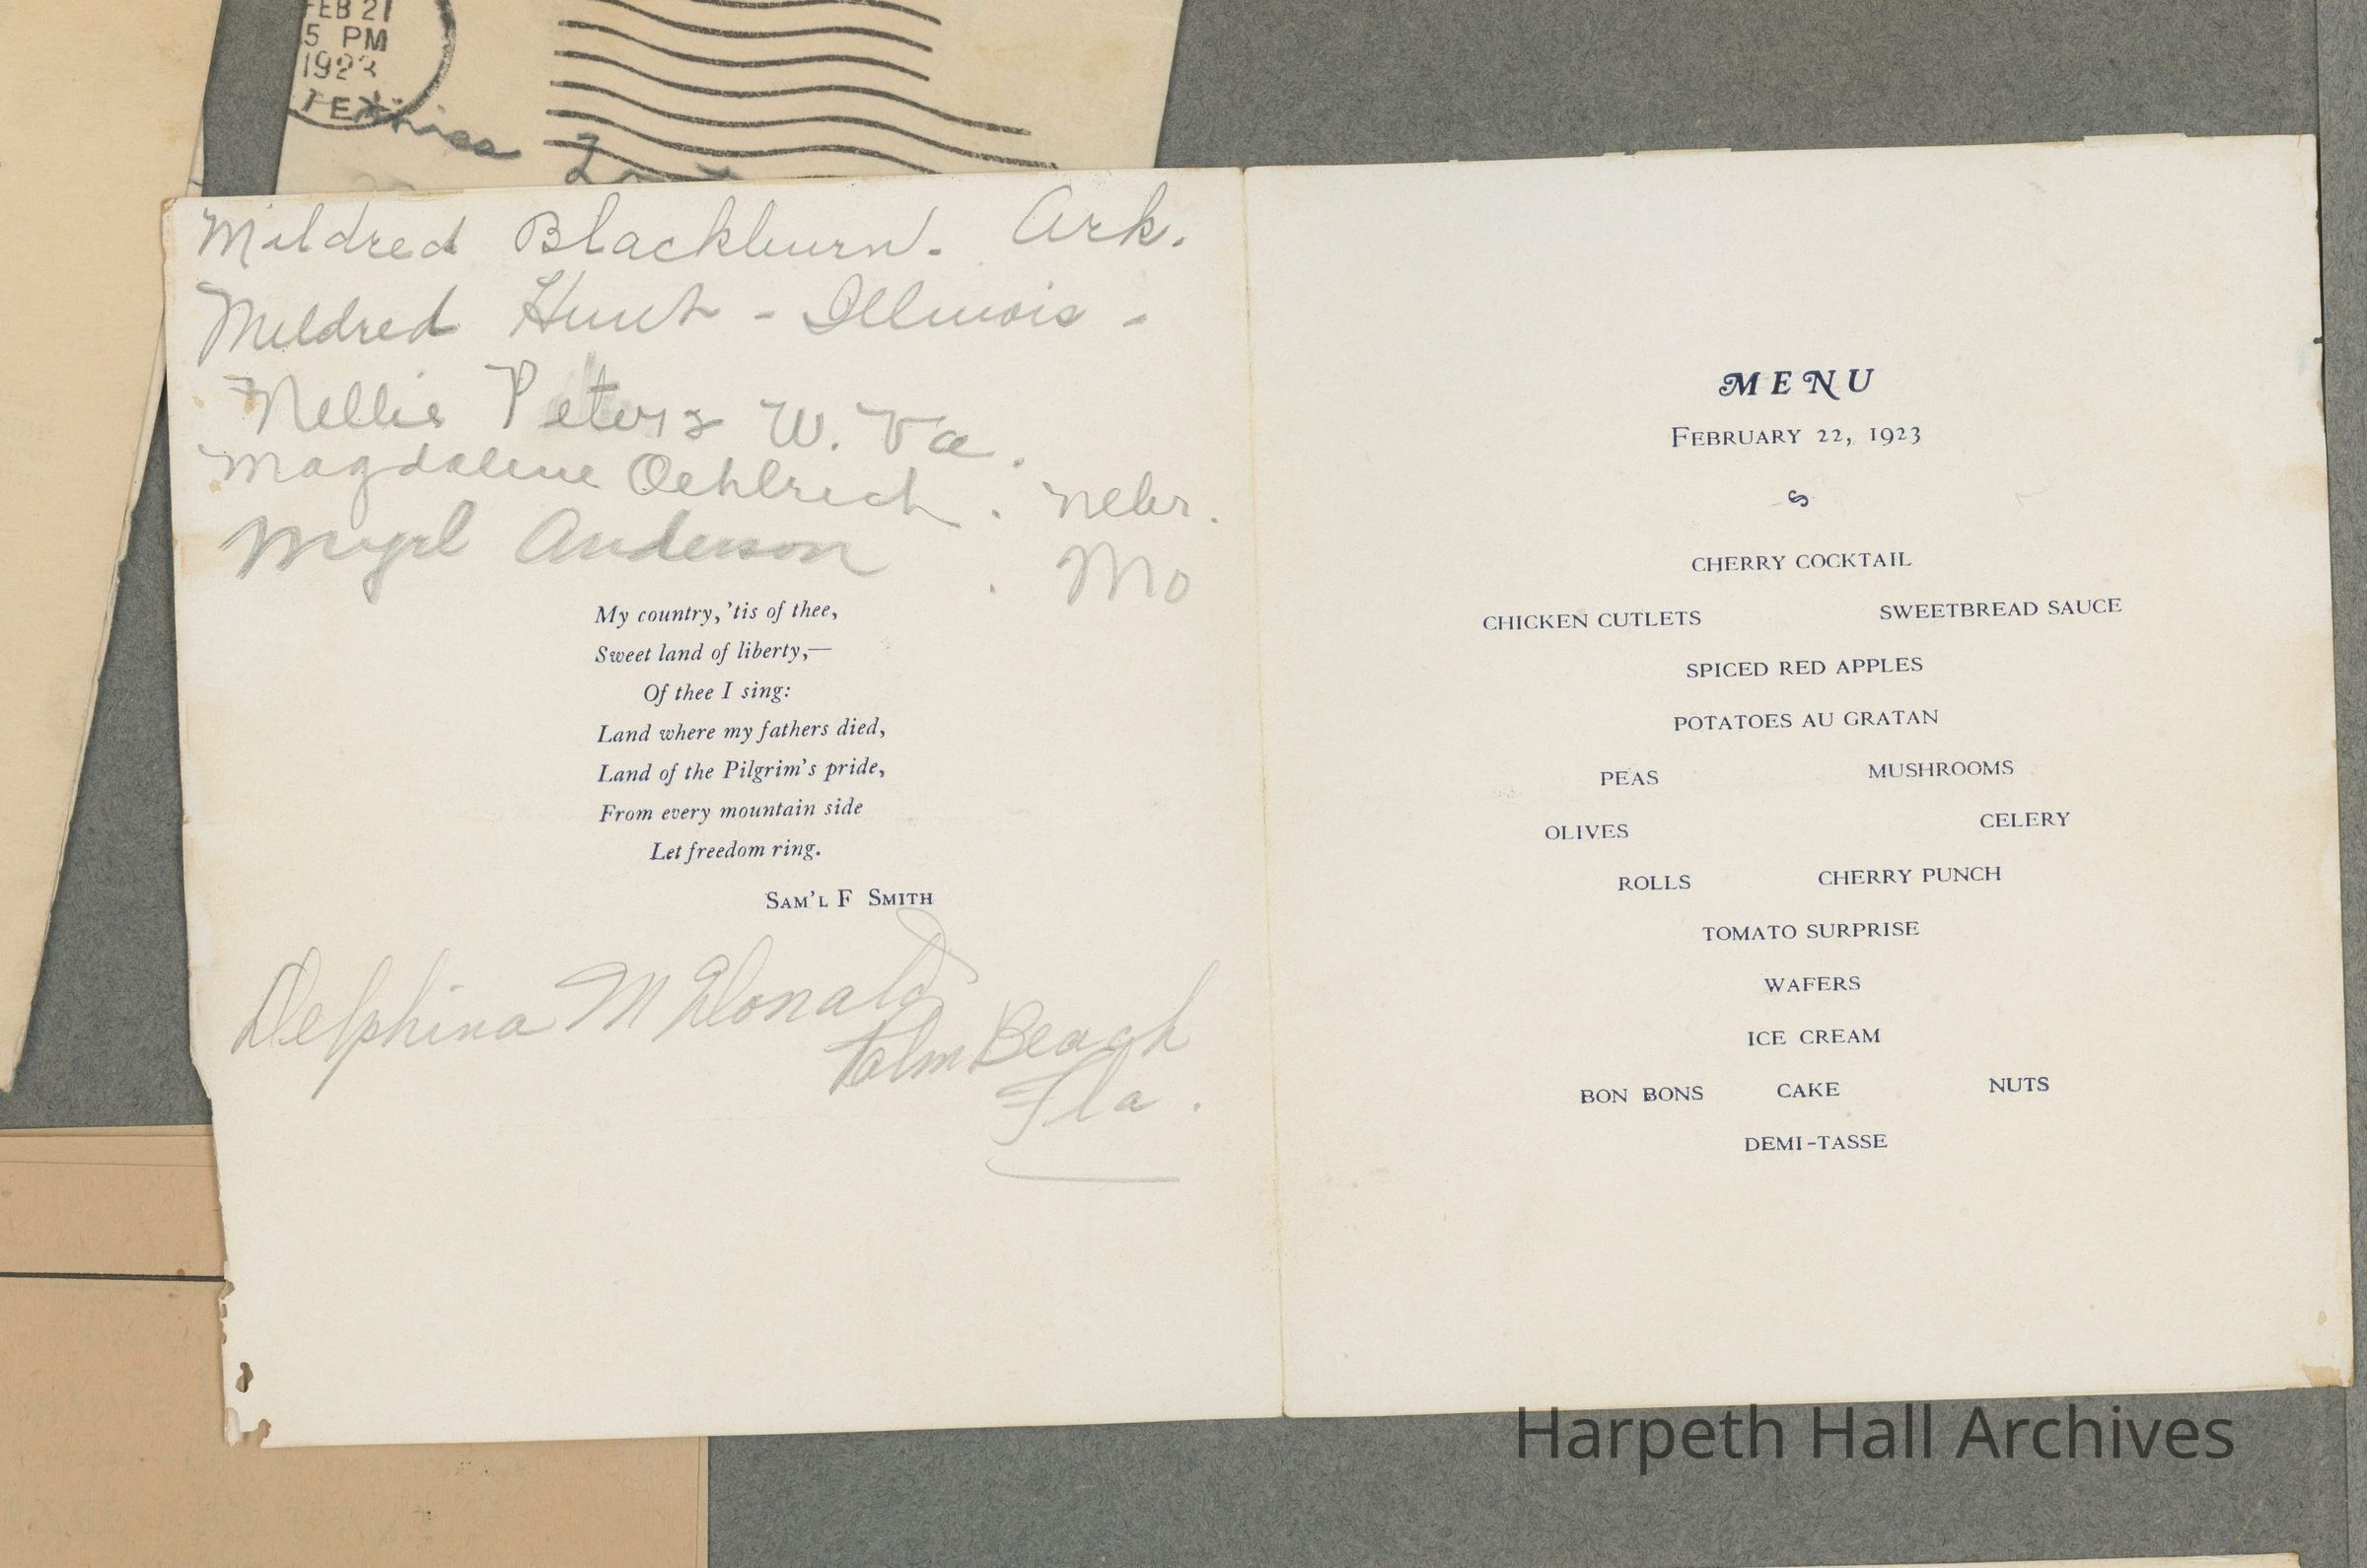 FEB 21
5 PM
1923
TEX
Miss
Mildred Blackburn. Ark.
Mildred Hunt - Illinois -
Nellie Peters W. Va.
Magdalene Oehlrich. Nebr.
Anderson. Mo
My country, 'tis of thee,
Sweet land of liberty,—
Of thee I sing:
Land where my fathers died,
Land of the Pilgrim's pride,
From every mountain side
Let freedom ring.
SAM'L F SMITH
Delphina McDonald
Palm Beach
Fla.
MENU
FEBRUARY 22, 1923
CHERRY COCKTAIL
CHICKEN CUTLETS SWEETBREAD SAUCE
SPICED RED APPLES
POTATOES AU GRATAN
PEAS MUSHROOMS
OLIVES CELERY
ROLLS CHERRY PUNCH
TOMATO SURPRISE
WAFERS
ICE CREAM
BON BONS CAKE NUTS
DEMI-TASSE
Harpeth Hall Archives